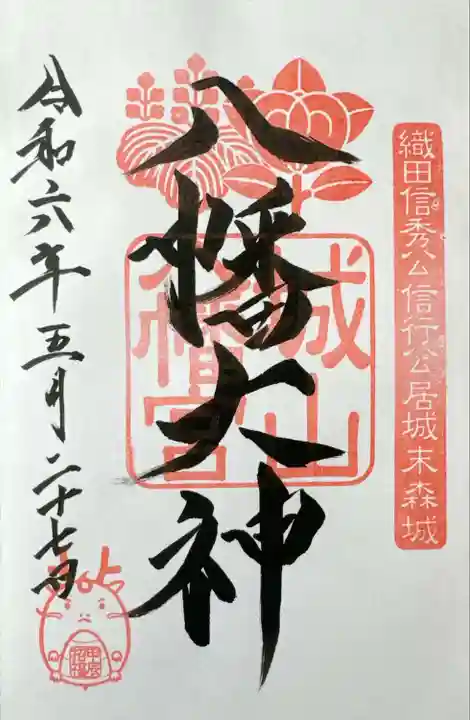 織田信秀公信行公居城末森城
八幡大神
城山
八幡宮
令和六年五月二十七日